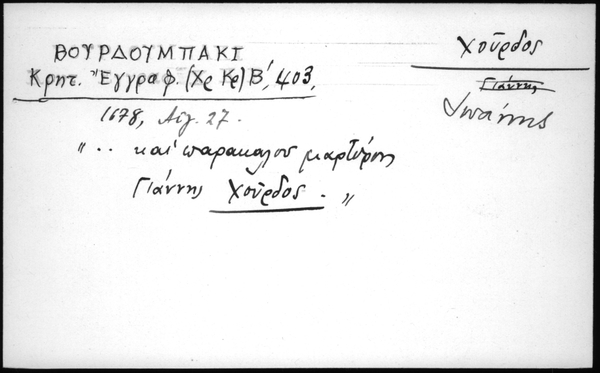 ΒΟΥΡΔΟΥΜΠΑΚΙ
Κρητ. Ἔγγραφ. (Χρ Κρ) Β΄, 403,
1678, Αὐγ. 27.
" .. καὶ παρακαλου μαρτύροι
Γιάννης Χοῦρδος . "
Χοῦρδος
Γιάννης
Ἰωάννης